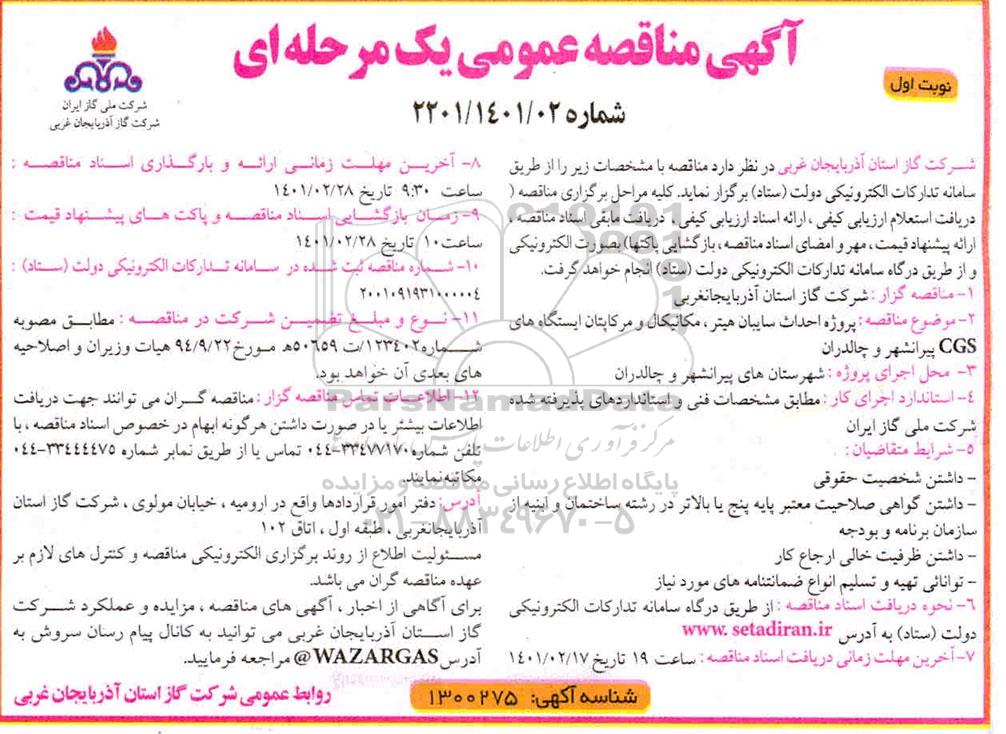 آگهی مناقصه عمومی یک مرحله ای
نوبت اول
شماره ۲۲۰۱/۱٤۰۱/۰۲
شرکت ملی گاز ایران
شرکت گاز آذربایجان غربی
شرکت گاز استان آذربایجان غربی در نظر دارد مناقصه با مشخصات زیر را از طریق
سامانه تدارکات الکترونیکی دولت (ستاد) برگزار نماید. کلیه مراحل برگزاری مناقصه (
دریافت استعلام ارزیابی کیفی ، ارائه اسناد ارزیابی کیفی ، دریافت مابقی اسناد مناقصه ،
ارائه پیشنهاد قیمت ، مهر و امضای اسناد مناقصه ، بازگشایی پاکتها) بصورت الکترونیکی
و از طریق درگاه سامانه تدارکات الکترونیکی دولت (ستاد) انجام خواهد گرفت.
۱- مناقصه گزار : شرکت گاز استان آذربایجانغربی
۲- موضوع مناقصه : پروژه احداث سایبان هیتر ، مکانیکال و مرکاپتان ایستگاه های
CGS پیرانشهر و چالدران
۳- محل اجرای پروژه : شهرستان های پیرانشهر و چالدران
٤- استاندارد اجرای کار : مطابق مشخصات فنی و استانداردهای پذیرفته شده
شرکت ملی گاز ایران
۵- شرایط متقاضیان :
- داشتن شخصیت حقوقی
- داشتن گواهی صلاحیت معتبر پایه پنج یا بالاتر در رشته ساختمان و ابنیه از
سازمان برنامه و بودجه
- داشتن ظرفیت خالی ارجاع کار
- توانائی تهیه و تسلیم انواع ضمانتنامه های مورد نیاز
۶- نحوه دریافت اسناد مناقصه : از طریق درگاه سامانه تدارکات الکترونیکی
دولت (ستاد) به آدرس www.setadiran.ir
۷- آخرین مهلت زمانی دریافت اسناد مناقصه : ساعت ۱۹ تاریخ ۱٤۰۱/۰۲/۱۷
۸- آخرین مهلت زمانی ارائه و بارگذاری اسناد مناقصه :
ساعت ۹:۳۰ تاریخ ۱٤۰۱/۰۲/۲۸
۹- زمان بازگشایی اسناد مناقصه و پاکت های پیشنهاد قیمت :
ساعت ۱۰ تاریخ ۱٤۰۱/۰۲/۲۸
۱۰- شماره مناقصه ثبت شده در سامانه تدارکات الکترونیکی دولت (ستاد) :
۲۰۰۱۰۹۱۹۳۱۰۰۰۰۰٤
۱۱- نوع و مبلغ تضمین شرکت در مناقصه : مطابق مصوبه
شماره ۱۲۳٤۰۲/ت ۵۰۶۵۹ه مورخ ۹٤/۹/۲۲ هیات وزیران و اصلاحیه
های بعدی آن خواهد بود.
۱۲- اطلاعات تماس مناقصه گزار : مناقصه گران می توانند جهت دریافت
اطلاعات بیشتر یا در صورت داشتن هرگونه ابهام در خصوص اسناد مناقصه ، با
تلفن شماره ۳۳٤۷۷۱۷۰-۰٤٤ تماس یا از طریق نمابر شماره ۳۳٤٤٤٤۷۵-۰٤٤
مکاتبه نمایند.
آدرس: دفتر امور قراردادها واقع در ارومیه ، خیابان مولوی ، شرکت گاز استان
آذربایجانغربی ، طبقه اول ، اتاق ۱۰۲
مسئولیت اطلاع از روند برگزاری الکترونیکی مناقصه و کنترل های لازم بر
عهده مناقصه گران می باشد.
برای آگاهی از اخبار ، آگهی های مناقصه ، مزایده و عملکرد شرکت
گاز استان آذربایجان غربی می توانید به کانال پیام رسان سروش به
آدرس WAZARGAS@ مراجعه فرمایید.
شناسه آگهی: ۱۳۰۰۲۷۵
روابط عمومی شرکت گاز استان آذربایجان غربی
ParsNamadData
پایگاه اطلاع رسانی مناقصه و مزایده
۰۲۱-۸۸۳۴۹۶۷۰-۵